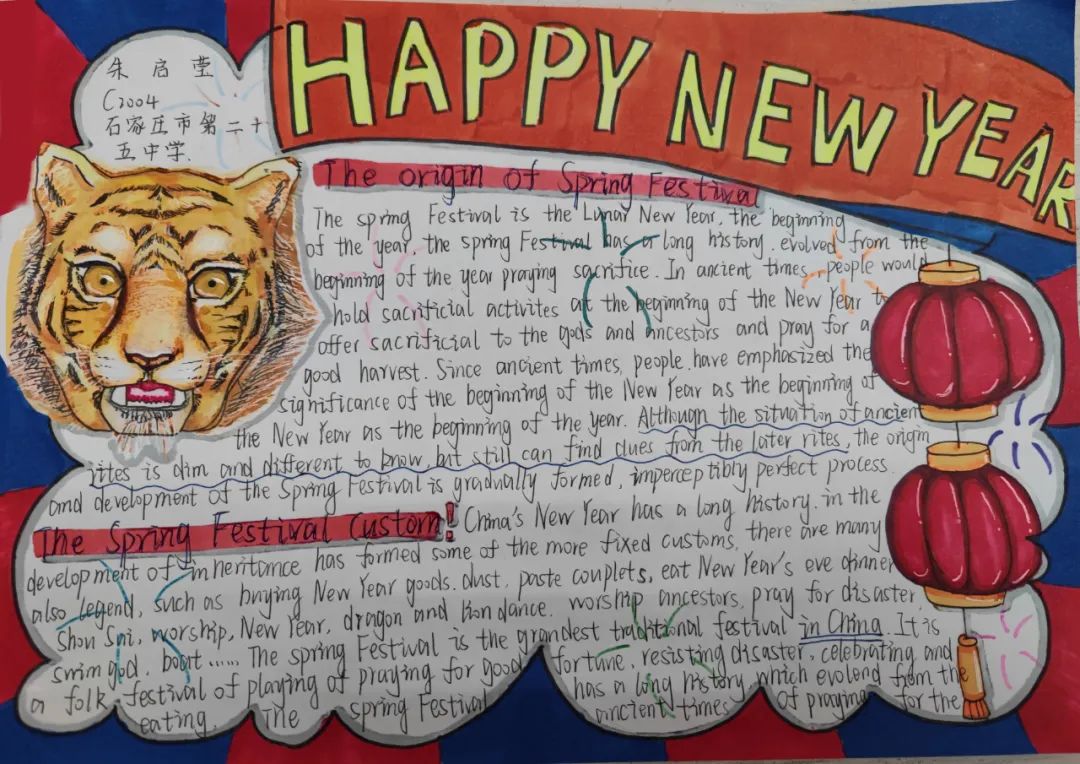 朱启莹
C2004
石家庄市第二十
五中学.
HAPPY NEW YEAR
The origin of Spring Festival
The spring Festival is the Lunar New Year, the beginning
of the year. the spring Festival has a long history. evolved from the
beginning of the year praying sacrifice. In ancient times, people would
hold sacrificial activites at the beginning of the New Year to
offer sacrificial to the gods and ancestors and pray for a
good harvest. Since ancient times, people have emphasized the
significance of the beginning of the New Year as the beginning of
the New Year as the beginning of the year. Although the situation of ancient
rites is dim and different to know but still can find clues from the later rites, the origin
and development of the Spring Festival is gradually formed, imperceptibly perfect process.
The Spring Festival Custom! China's New Year has a long history. in the
development of inheritance has formed some of the more fixed customs, there are many
also legend, such as buying New Year goods. dust, paste couplets, eat New Year's eve dinner
Shou Sui, worship, New Year, dragon and lion dance. worship ancestors, pray for disaster,
swim god, boat...... The spring Festival is the grandest traditional festival in China It is
a folk festival of playing of praying for good fortune, resisting disaster, celebrating and
eating. The spring Festival has a long history which evolend from the
ancient times of praying for the